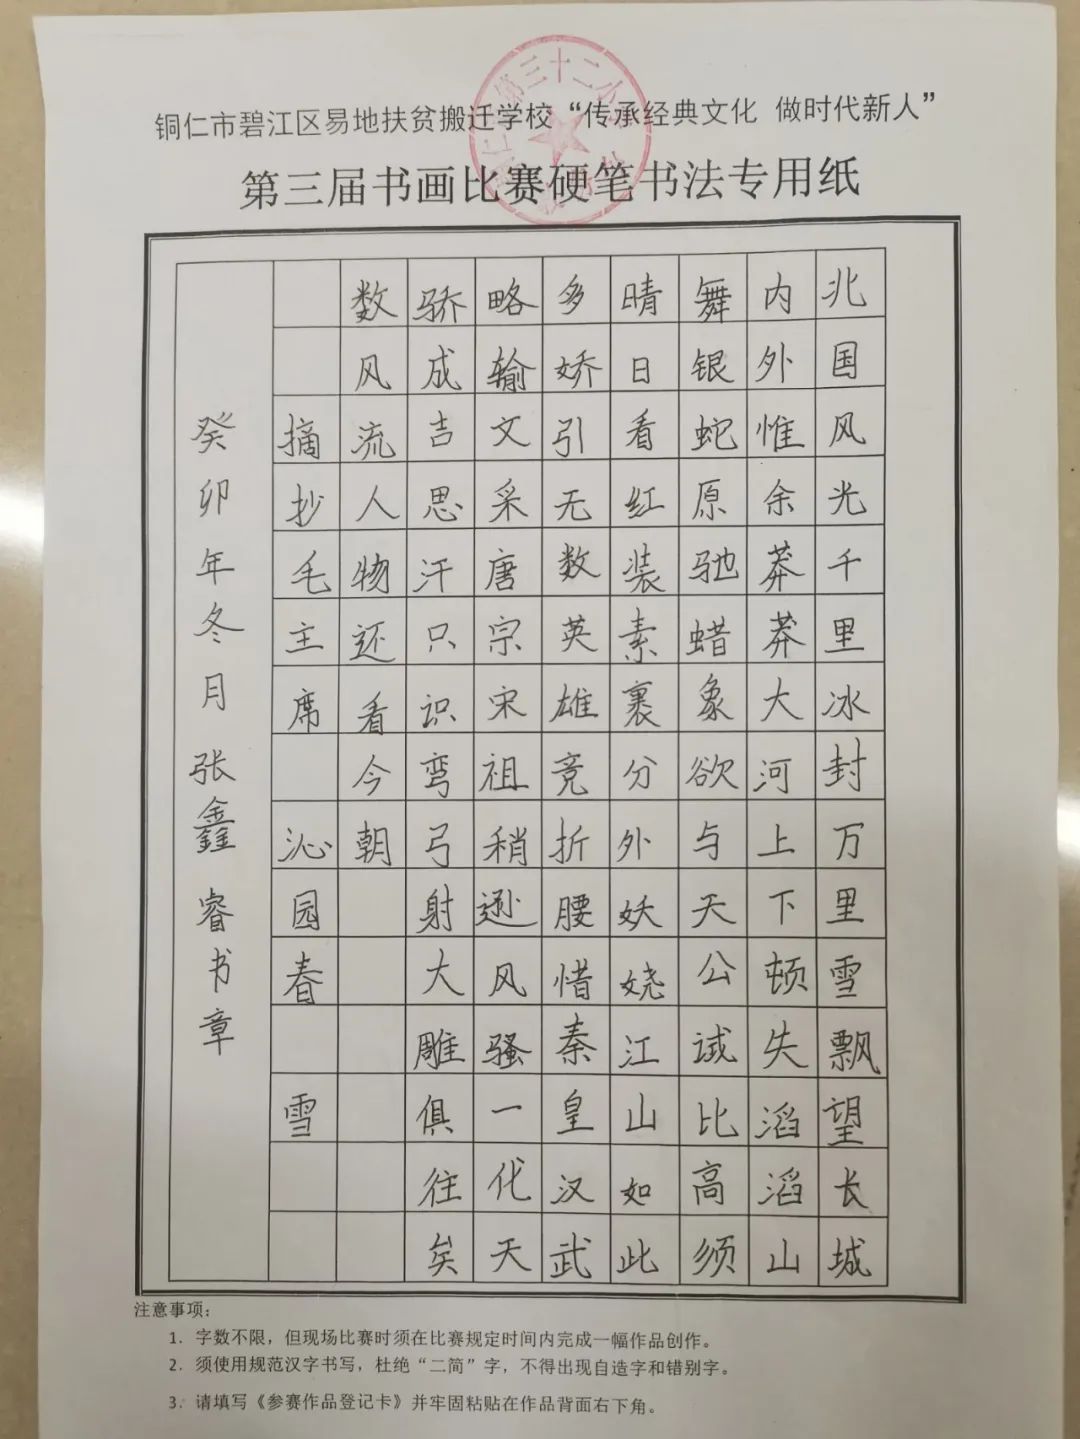 铜仁市碧江区易地扶贫搬迁学校“传承经典文化 做时代新人”
第三届书画比赛硬笔书法专用纸
第三十二小
北国风光千里冰封万里雪飘望长城
内外惟余莽莽大河上下顿失滔滔山
舞银蛇原驰蜡象欲与天公试比高须
晴日看红装素裹分外妖娆江山如此
多娇引无数英雄竞折腰惜秦皇汉武
略输文采唐宗宋祖稍逊风骚一代天
骄成吉思汗只识弯弓射大雕俱往矣
数风流人物还看今朝
摘抄毛主席 沁园春 雪
癸卯年冬月 张鑫睿书章
注意事项：
1. 字数不限，但现场比赛时须在比赛规定时间内完成一幅作品创作。
2. 须使用规范汉字书写，杜绝“二简”字，不得出现自造字和错别字。
3. 请填写《参赛作品登记卡》并牢固粘贴在作品背面右下角。